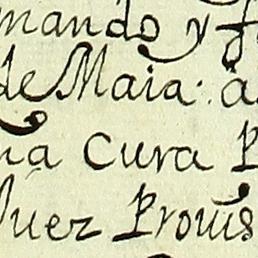 mando y f
de Maia: a
na Cura P
Juez Provis